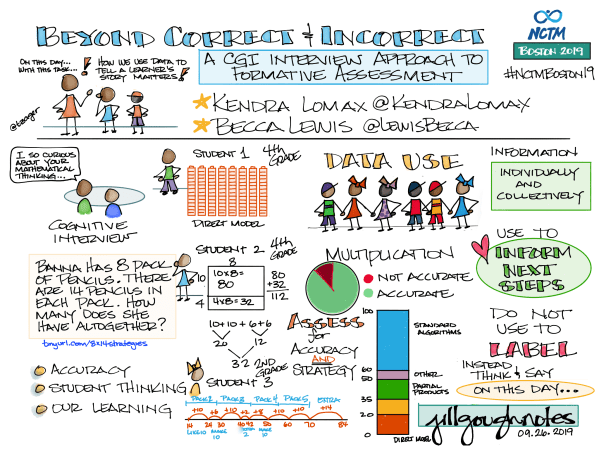 BEYOND CORRECT & INCORRECT
NCTM
BOSTON 2019
#NCTMBOSTON19
ON THIS DAY...
WITH THIS TASK...
HOW WE USE DATA TO
TELL A LEARNER'S
STORY MATTERS!
A CGI INTERVIEW APPROACH TO
FORMATIVE ASSESSMENT
KENDRA LOMAX @KENDRALOMAX
BECCA LEWIS @LEWISBECCA
I SO CURIOUS
ABOUT YOUR
MATHEMATICAL
THINKING...
COGNITIVE
INTERVIEW
STUDENT 1 4TH
GRADE
DIRECT MODEL
DATA USE
INFORMATION
INDIVIDUALLY
AND
COLLECTIVELY
USE TO
INFORM
NEXT
STEPS
BANNA HAS 8 PACK
OF PENCILS. THERE
ARE 14 PENCILS IN
EACH PACK. HOW
MANY DOES SHE
HAVE ALTOGETHER?
tinyurl.com/8x14strategies
STUDENT 2 4TH
GRADE
8
10
10x8=
80
4
4x8=32
80
+32
112
10+10+6+6
20 12
32
2ND
GRADE
STUDENT 3
MULTIPLICATION
NOT ACCURATE
ACCURATE
ASSESS
for
ACCURACY
AND
STRATEGY
100
STANDARD
ALGORITHMS
60
OTHER
50
PARTIAL
PRODUCTS
35
20
0
DO NOT
USE TO
LABEL
INSTEAD
THINK & SAY
ON THIS DAY...
ACCURACY
STUDENT THINKING
OUR LEARNING
PACK 2 PACK 3 PACK 4 PACK 5 EXTRA
+10 +6 +10 +2 +8 +10 +10 +14
14 60 70 84
jillgoughnotes
09.26.2019